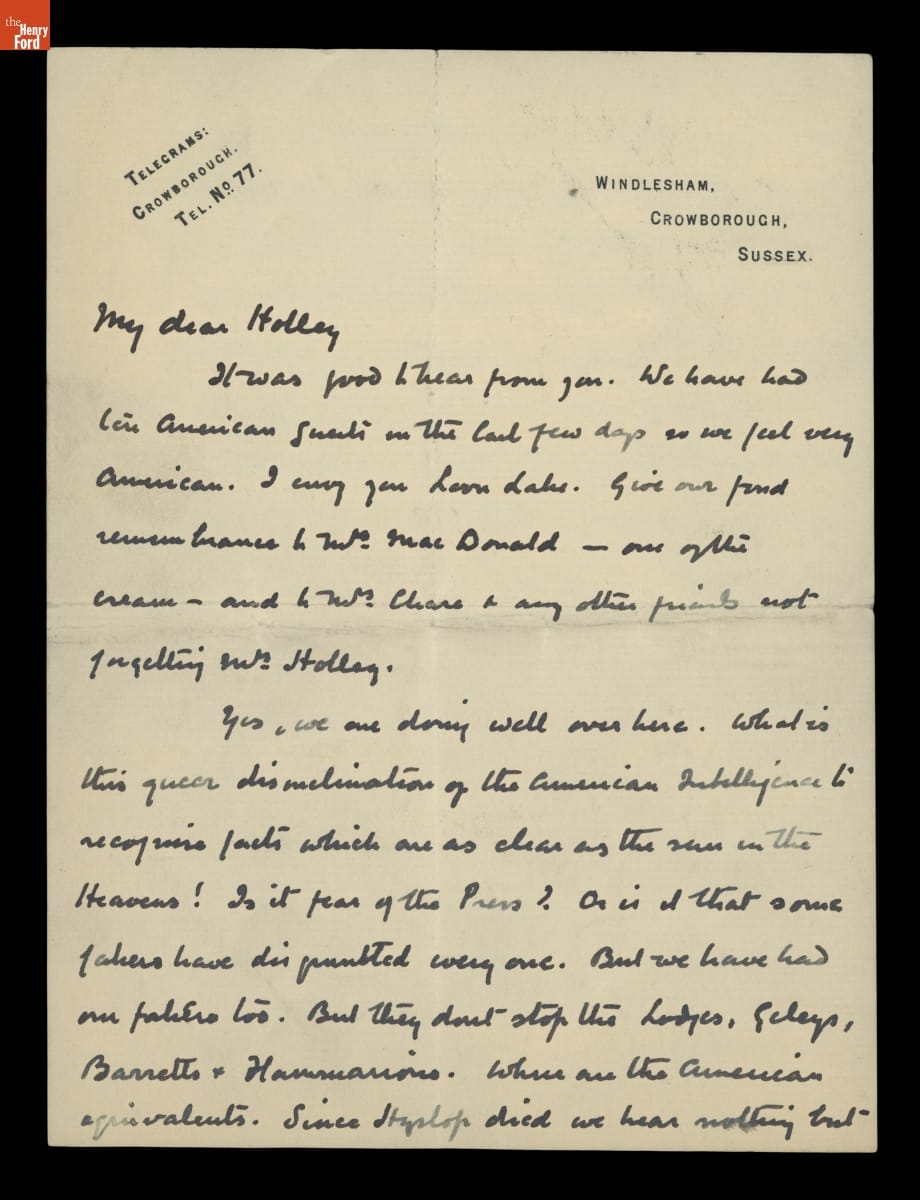 the
Henry
Ford
TELEGRAMS:
CROWBOROUGH.
TEL. No. 77.
WINDLESHAM,
CROWBOROUGH,
SUSSEX.
My dear Holley
It was good to hear from you. We have had
ten American guests in the last few days so we feel very
American. I envy you Loon Lake. Give our fond
remembrance to Mrs MacDonald – one of the
cream – and to Mrs Chase & any other friends not
forgetting Mrs Holley.
Yes, we are doing well over here. What is
this queer disinclination of the American Intelligence to
recognise facts which are as clear as the sun in the
Heavens! Is it fear of the Press? Or is it that some
fakers have disgruntled everyone. But we have had
our fakers too. But they dont stop the Lodges, Geleys,
Barretts & Flammarions. Where are the American
equivalents. Since Hyslop died we hear nothing but